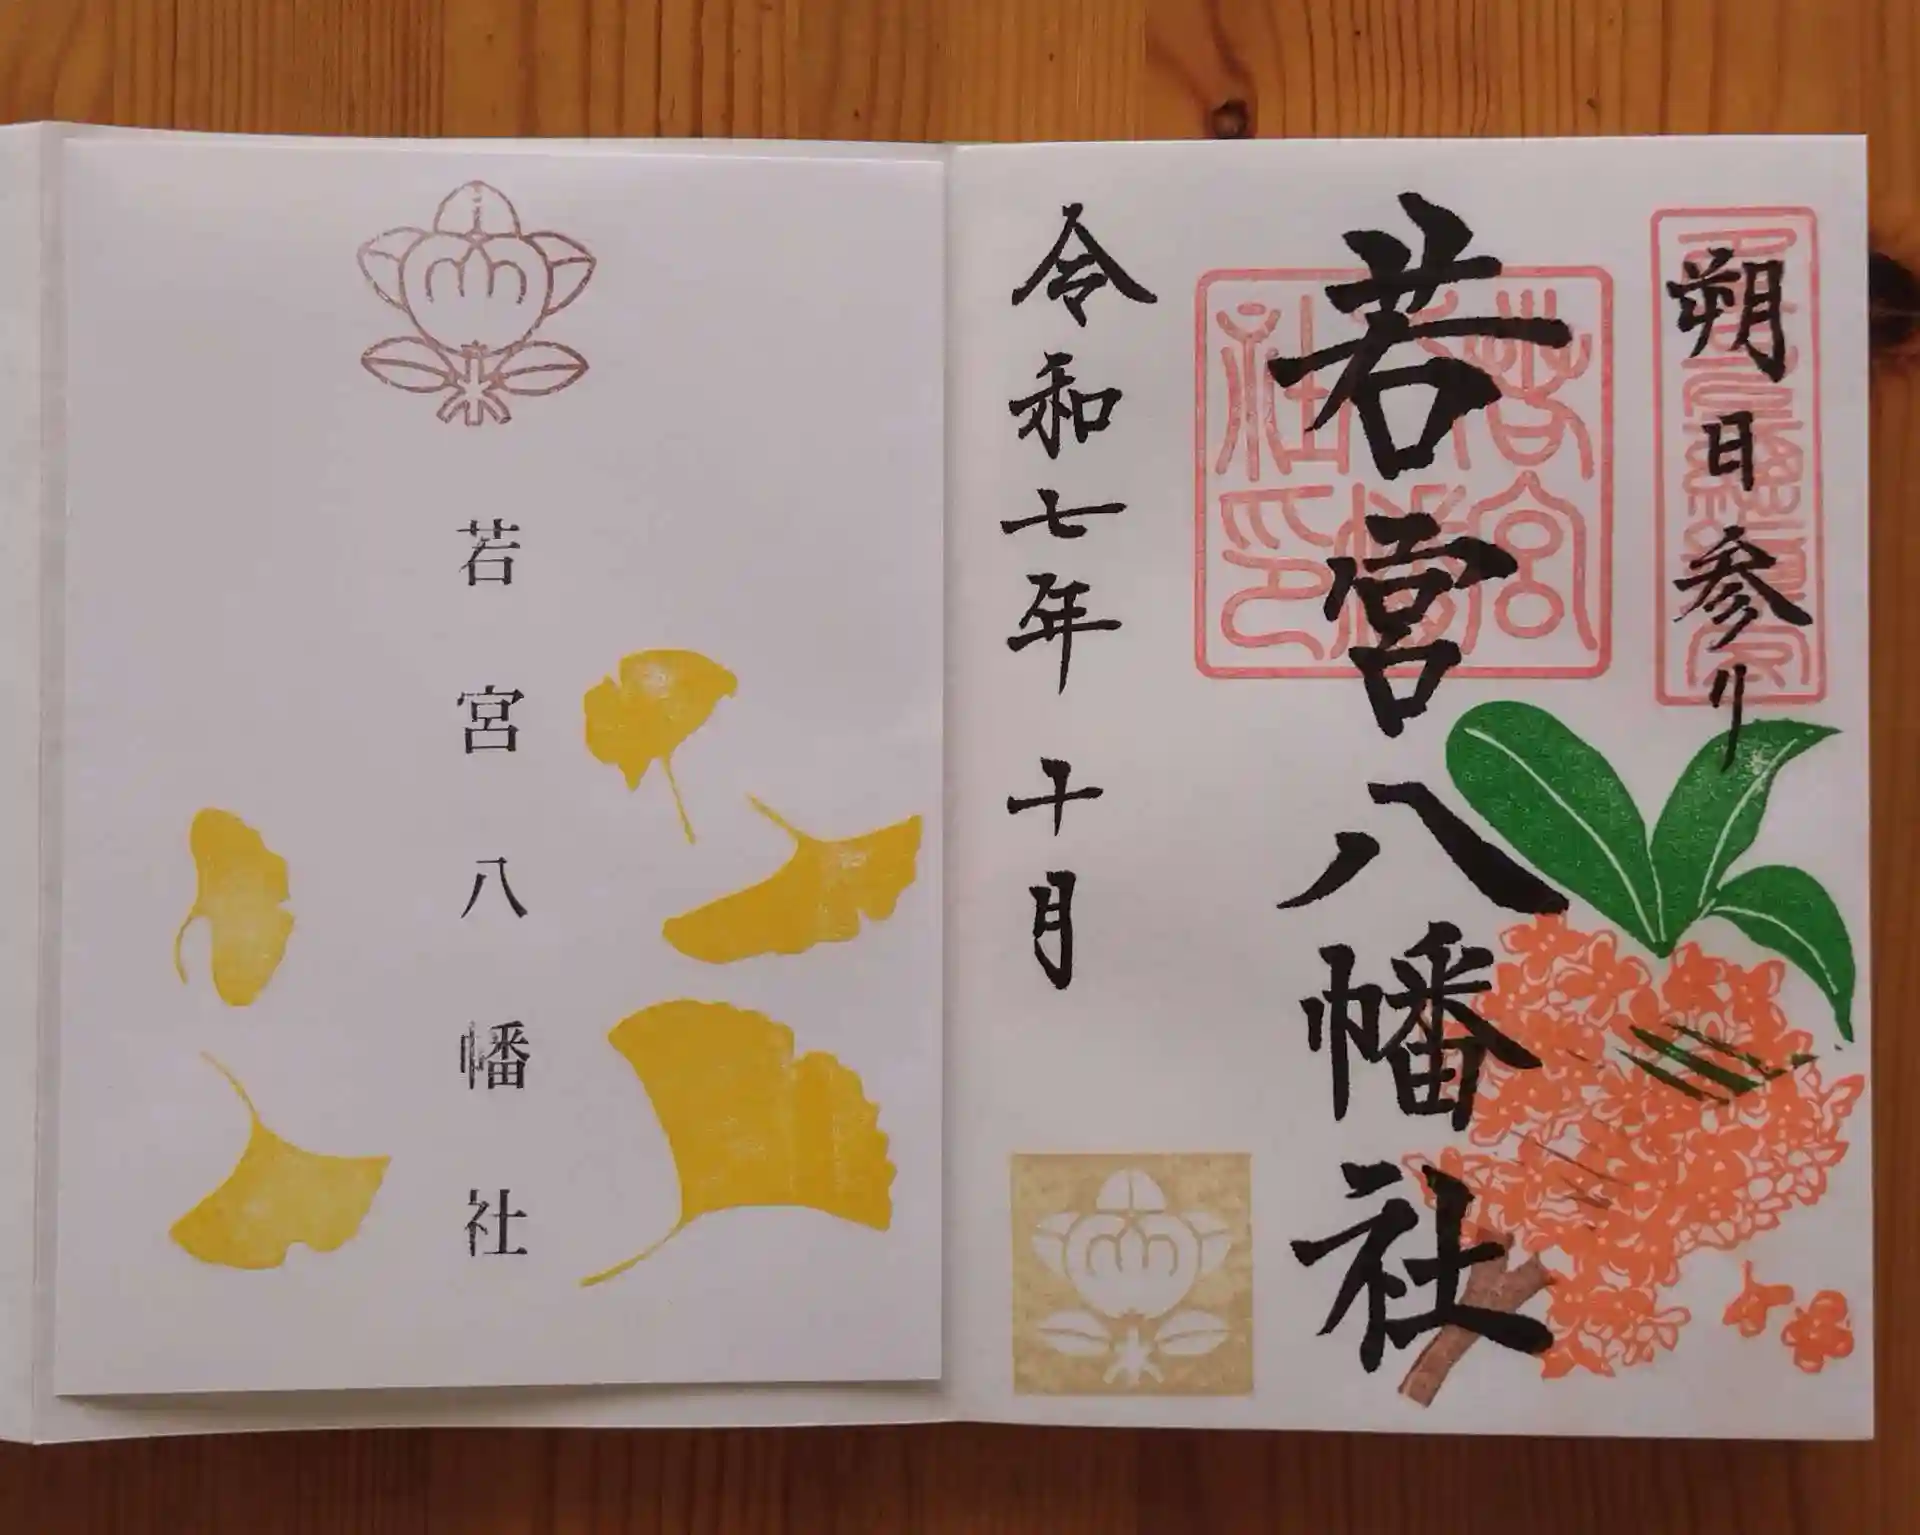 朔日参り
若宮八幡社
若宮
八幡
社印
令和七年 十月
若宮八幡社